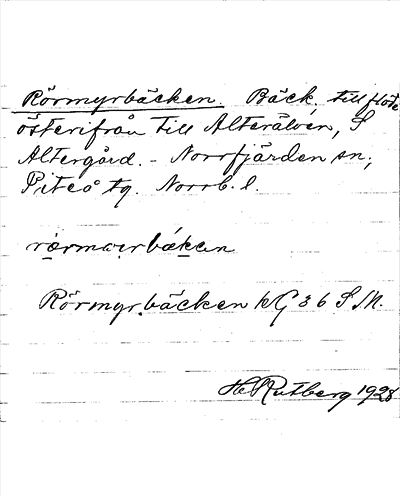 Rörmyrbäcken. Bäck, tillflöde
österifrån till Alterälven, S
Altergård. - Norrfjärden sn,
Piteå tg. Norrb. l.
Rörmyrbäcken kG 36 S
H Rutberg 1928